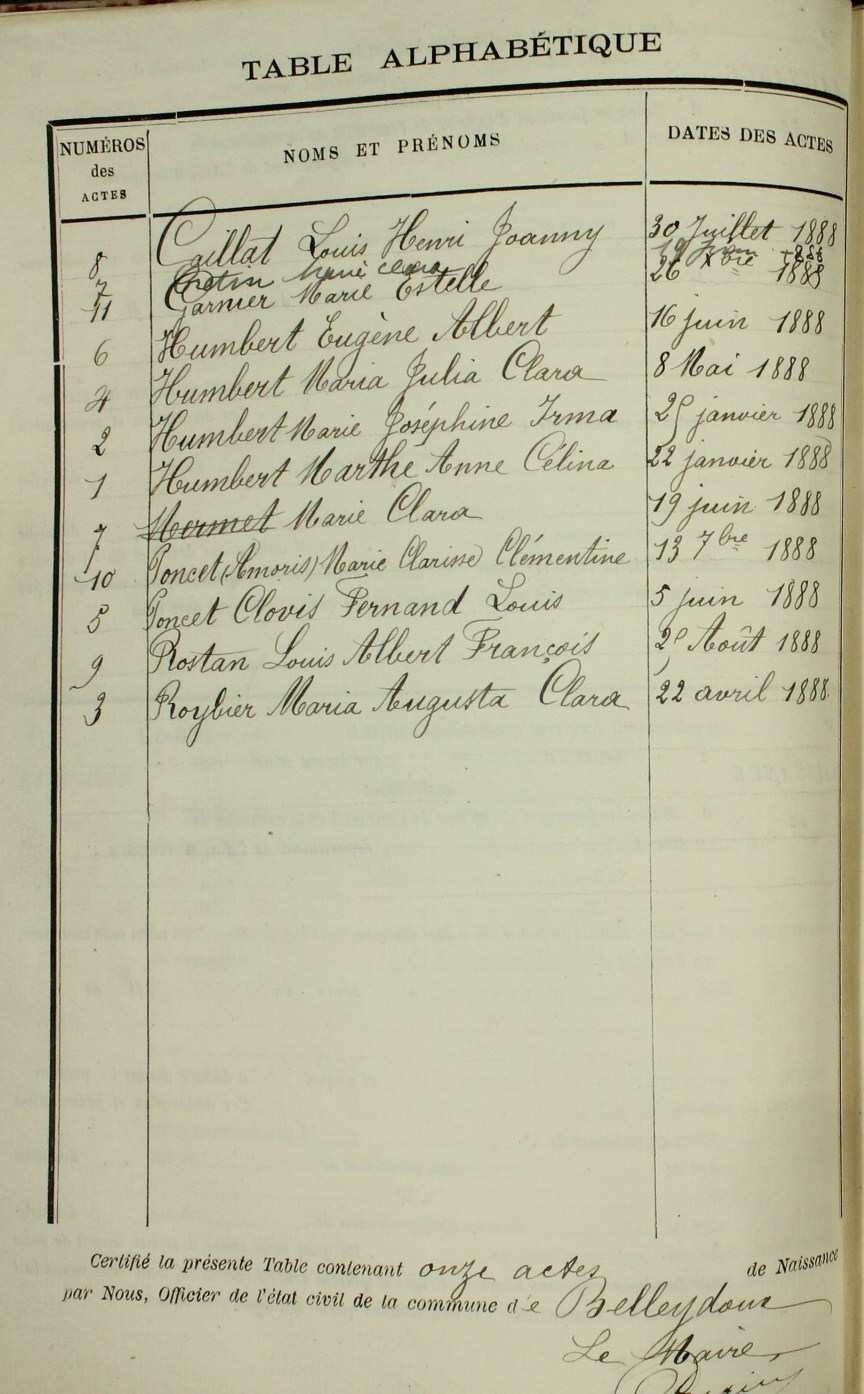 TABLE ALPHABÉTIQUE
NUMÉROS des ACTES NOMS ET PRÉNOMS DATES DES ACTES
8 Caillat Louis Henri Joanny 30 Juillet 1888
7 Marie Clara 19 juin 1888
11 Garnier Marie Estelle 26 Xbre 1888
6 Humbert Eugène Albert 16 juin 1888
4 Humbert Maria Julia Clara 8 Mai 1888
2 Humbert Marie Joséphine Irma 25 janvier 1888
1 Humbert Marthe Anne Célina 22 janvier 1888
7 Mermet Marie Clara 19 juin 1888
10 Poncet (Amoris) Marie Clarisse Clémentine 13 7bre 1888
5 Poncet Clovis Fernand Louis 5 juin 1888
9 Rostan Louis Albert François Août 1888
3 Roybier Maria Augusta Clara 22 avril 1888
Certifié la présente Table contenant onze actes de Naissance
par Nous, Officier de l'état civil de la commune de Belleydoux
Le Maire